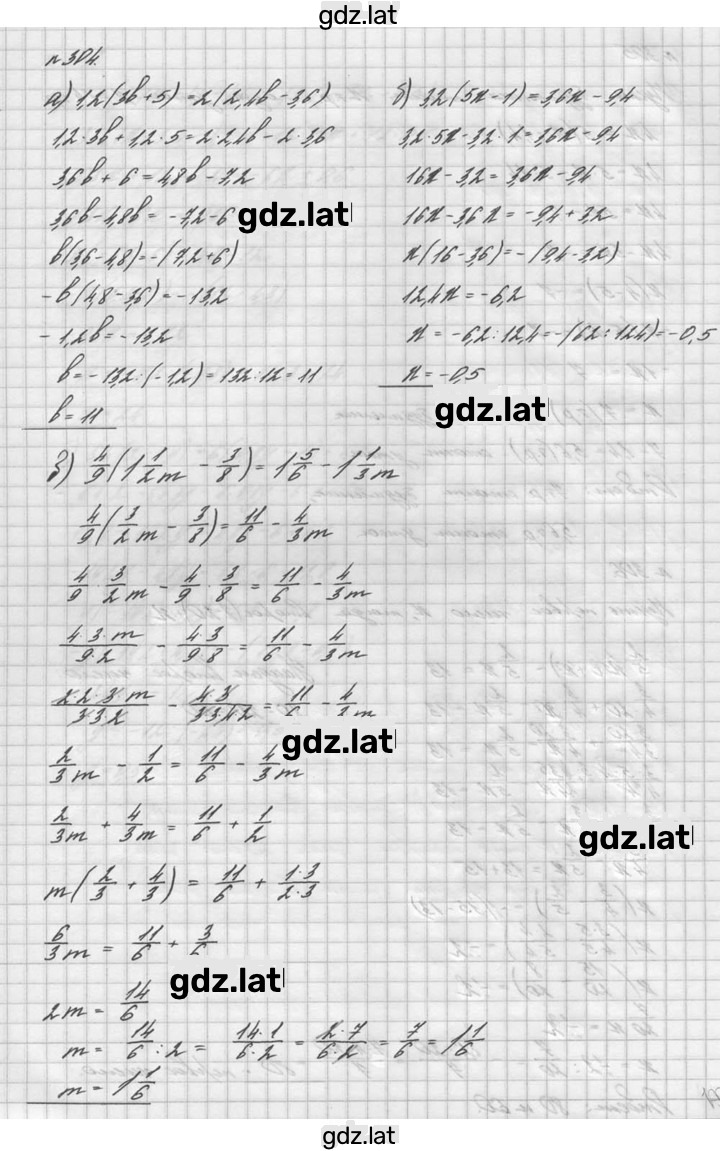 gdz.latl
n 304.
а) 1,2(3b+5) = 2(2,4b - 3,6)
1,2·3b + 1,2·5 = 2·2,4b - 2·3,6
3,6b + 6 = 4,8b - 7,2
3,6b - 4,8b = -7,2 - 6
b(3,6 - 4,8) = -(7,2 + 6)
-b(4,8 - 3,6) = -13,2
-1,2b = -13,2
b = -13,2 : (-1,2) = 132 : 12 = 11
b = 11
б) 3,2(5x - 1) = 3,6x - 9,4
3,2·5x - 3,2·1 = 3,6x - 9,4
16x - 3,2 = 3,6x - 9,4
16x - 3,6x = -9,4 + 3,2
x(16 - 3,6) = -(9,4 - 3,2)
12,4x = -6,2
x = -6,2 : 12,4 = -(62 : 124) = -0,5
x = -0,5
gdz.latl
gdz.latl
в) 4/9(1 1/2 m - 3/8) = 1 5/6 - 1 1/3 m
4/9(3/2 m - 3/8) = 11/6 - 4/3 m
4/9 · 3/2 m - 4/9 · 3/8 = 11/6 - 4/3 m
4·3·m/9·2 - 4·3/9·8 = 11/6 - 4/3 m
2·2·3·m/3·3·2 - 4·3/3·3·4·2 = 11/6 - 4/3 m
gdz.latl
2/3 m - 1/2 = 11/6 - 4/3 m
2/3 m + 4/3 m = 11/6 + 1/2
gdz.latl
m(2/3 + 4/3) = 11/6 + 1·3/2·3
6/3 m = 11/6 + 3/6
gdz.latl
2m = 14/6
m = 14/6 : 2 = 14·1/6·2 = 2·7/6·2 = 7/6 = 1 1/6
m = 1 1/6
gdz.latl